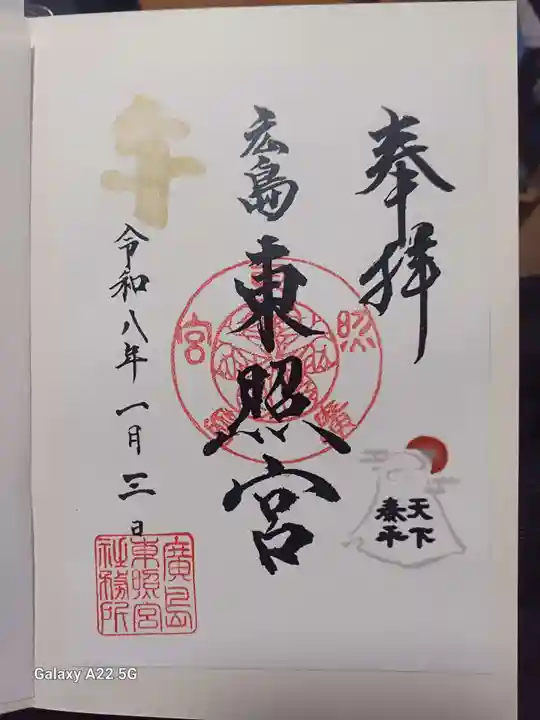 奉拝
天下
泰平
広島
東照宮
照
宮
午
令和八年一月三日
廣島
東照宮
社務所
Galaxy A22 5G